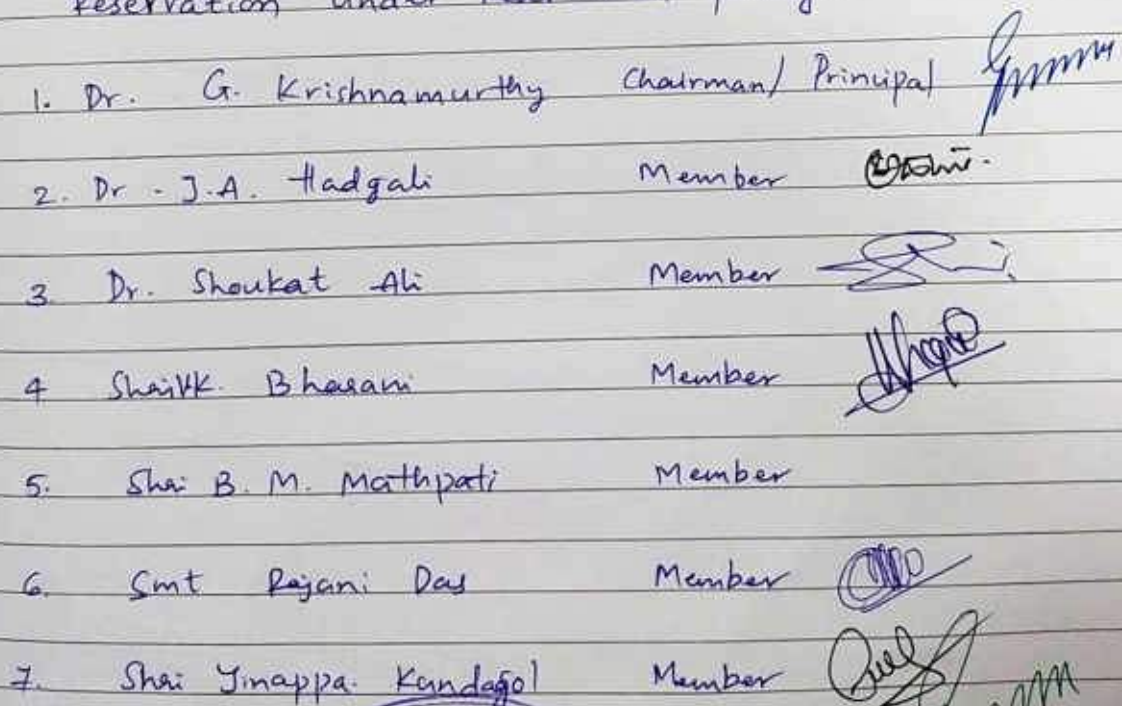 Reservation under
1. Dr. G. Krishnamurthy Chairman/ Principal
2. Dr. J.A. Hadgali Member
3 Dr. Shoukat Ali Member
4 Member
5. Shri B. M. Mathpati Member
6. Smt Rajani Das Member
7. Shri Jinappa. Kundagol Member